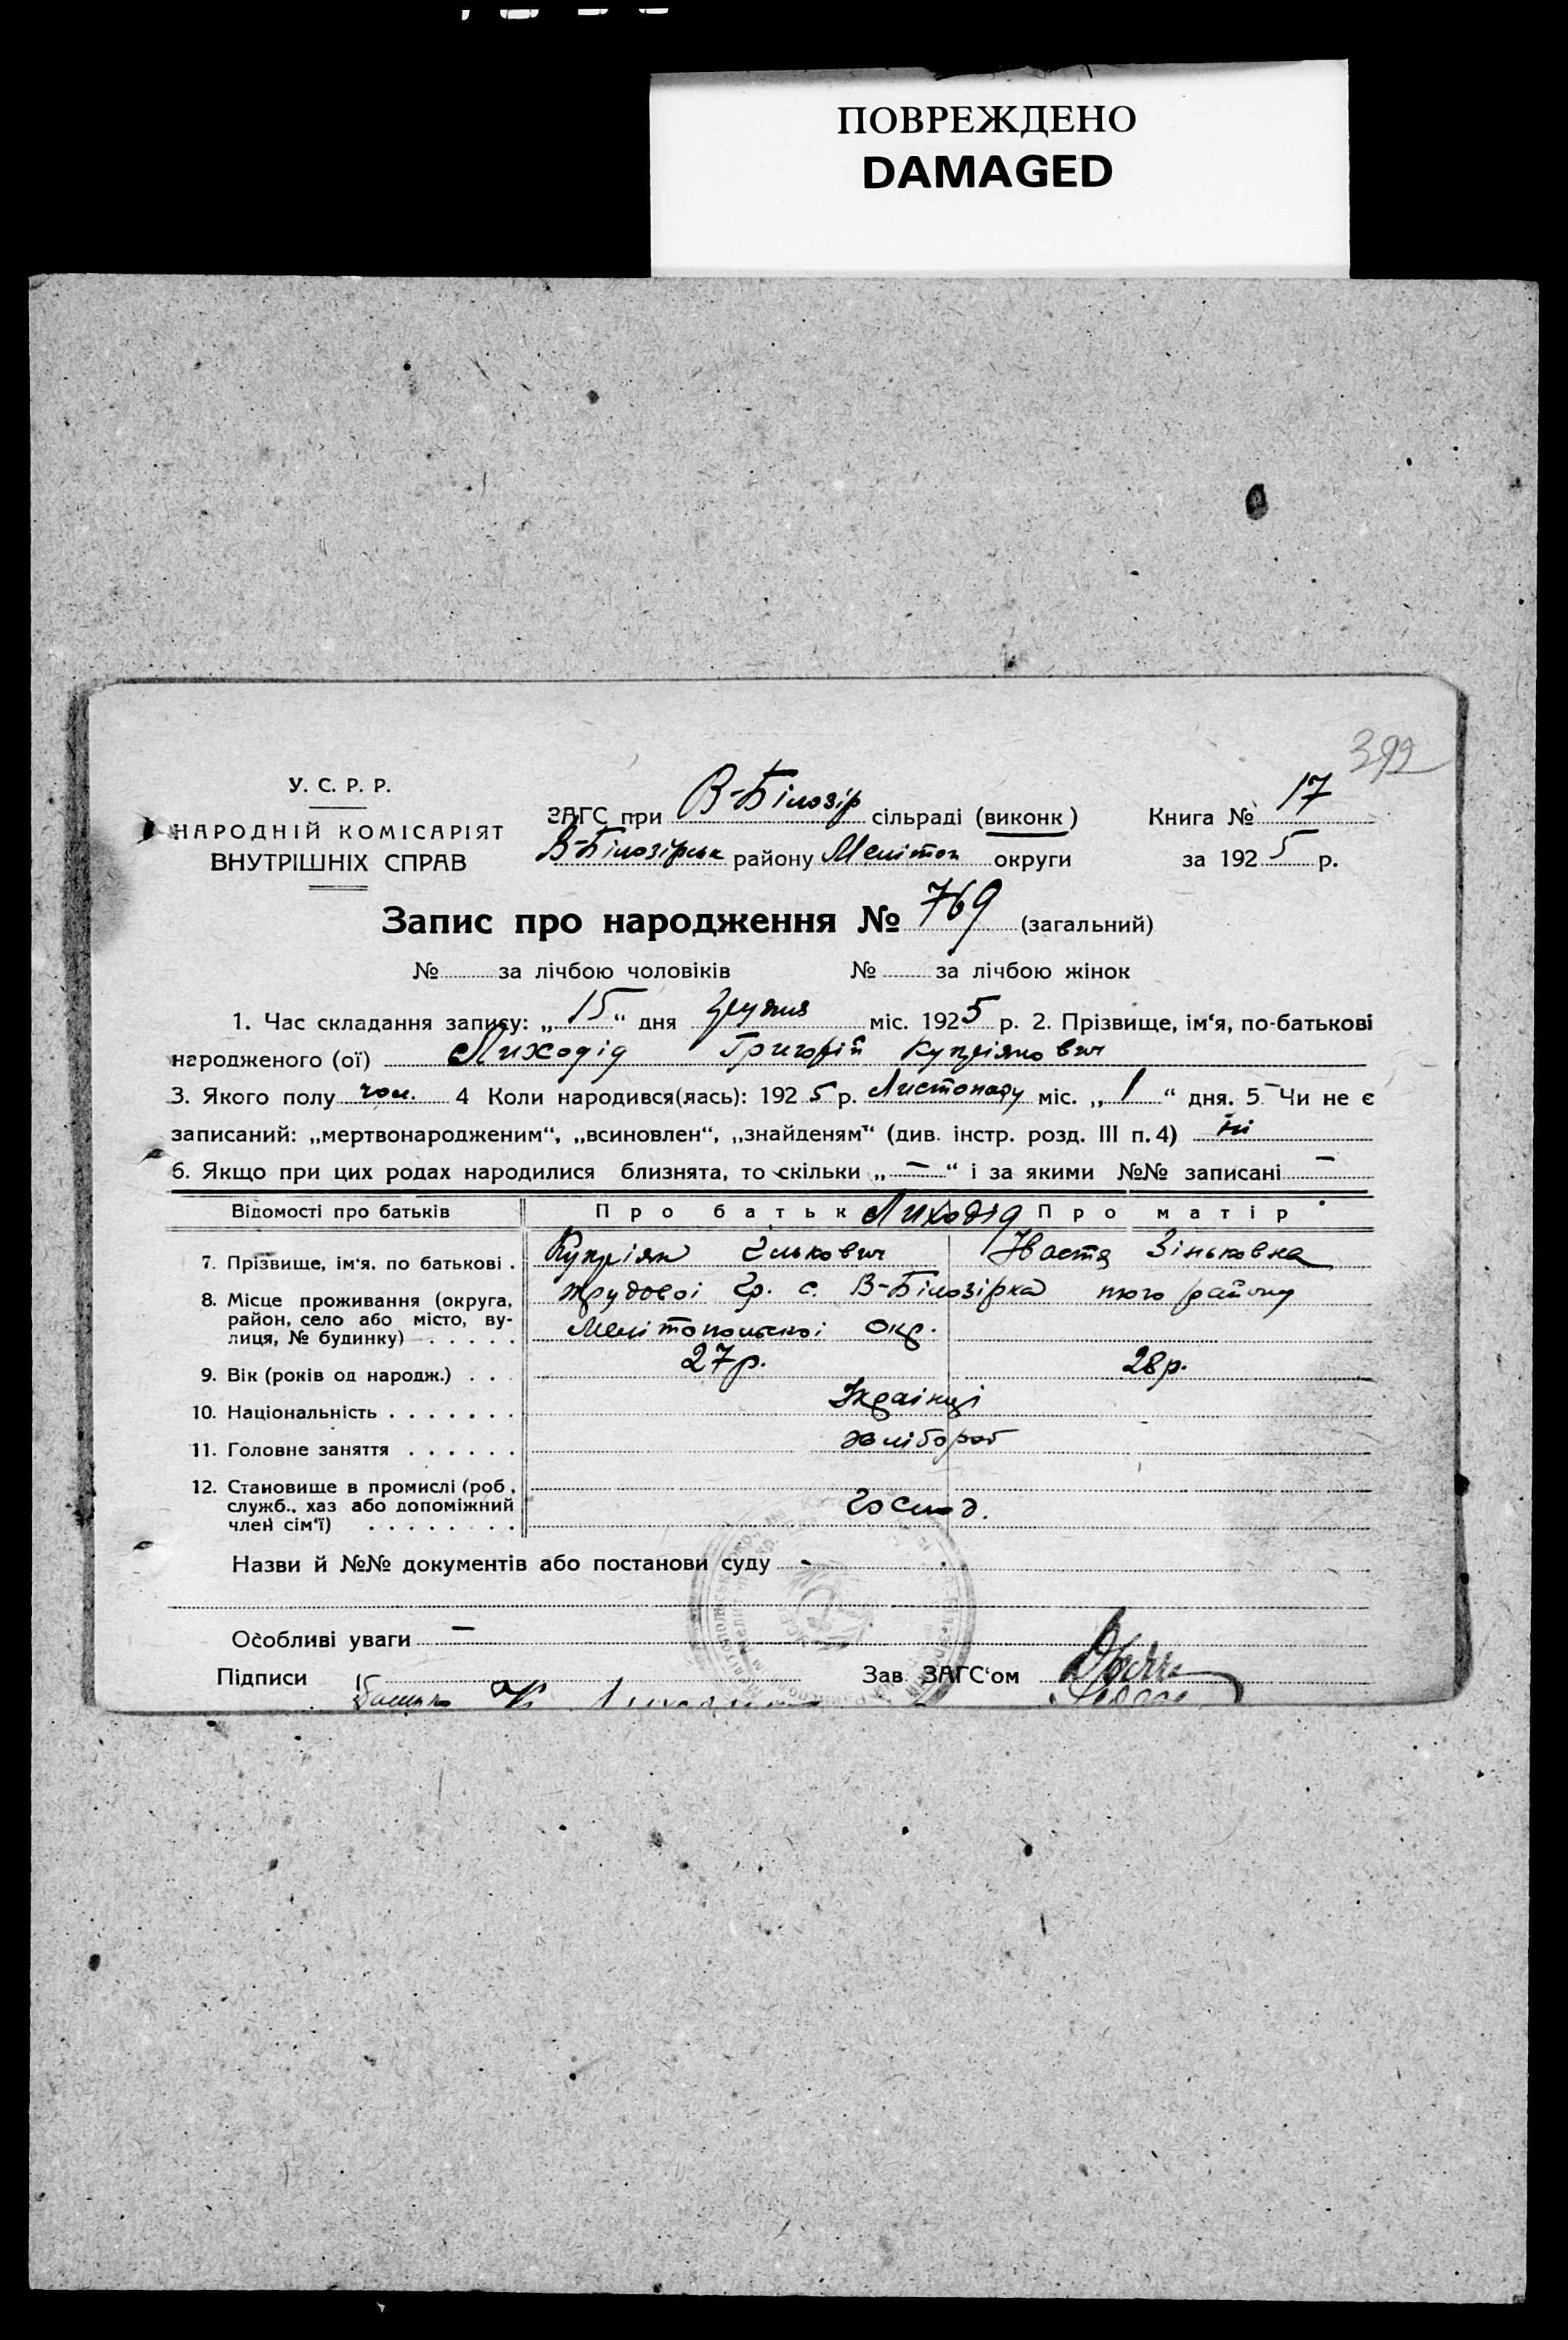 ПОВРЕЖДЕНО
DAMAGED
392
У. С. Р. Р.
НАРОДНІЙ КОМІСАРІЯТ
ВНУТРІШНІХ СПРАВ
ЗАГС при В-Білозір сільраді (виконк)
В-Білозірськ району Мелітоп округи
Книга № 17
за 1925 р.
Запис про народження № 769 (загальний)
№ за лічбою чоловіків № за лічбою жінок
1. Час складання запису: „15“ дня грудня міс. 1925 р. 2. Прізвище, ім‘я, по-батькові
народженого (ої) Лиходід Григорій Купріянович
3. Якого полу чол. 4 Коли народився(лась): 1925 р. Листопаду міс. „1“ дня. 5. Чи не є
записаний: „мертвонародженим“, „всиновлен“, „знайденям“ (див. інстр. розд. III п. 4) ні
6. Якщо при цих родах народилися близнята, то скільки „—“ і за якими №№ записані —
Відомості про батьків Про батьк Лиходід Про матір
7. Прізвище, ім‘я, по батькові . Купріян Ількович Настя Зіньковна
8. Місце проживання (округа, трудової гр. с. В-Білозірка того району
район, село або місто, ву-
лиця, № будинку) . . . . . Мелітопольскої окр.
9. Вік (років од народж.) . . . 27 р. 28 р.
10. Національність . . . . . . . Українці
11. Головне заняття . . . . . . хлібороб
12. Становище в промислі (роб.,
служб., хаз або допоміжний Господ.
член сім‘ї) . . . . . . . .
Назви й №№ документів або постанови суду -
Особливі уваги —
Підписи Зав. ЗАГС‘ом
Батько